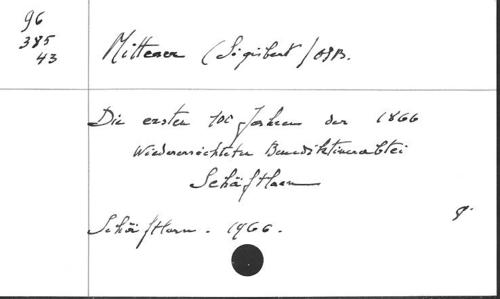 96
385
43
Mitterer (Sigisbert) OSB.
Die ersten 100 Jahren der 1866
Wiedererrichteten Benediktinerabtei
Schäftlarn
Schäftlarn. 1966.